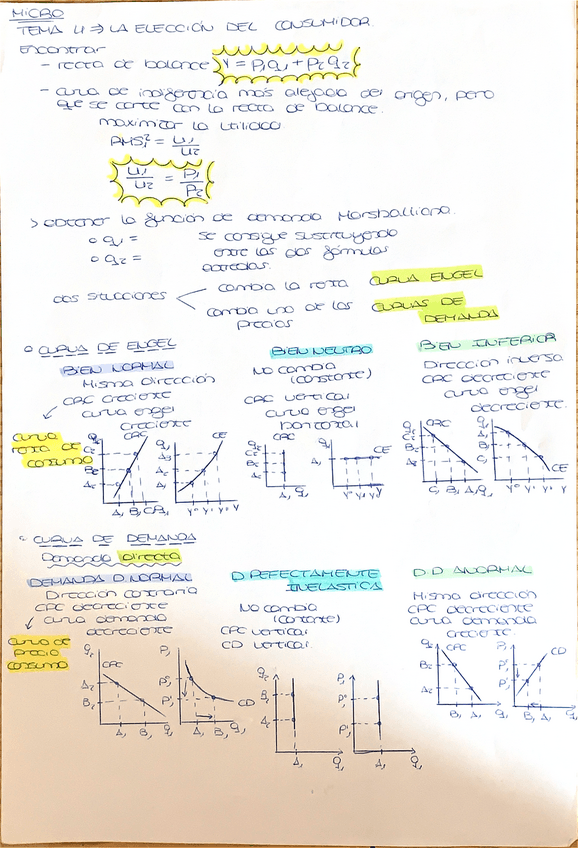 MICRO
TEMA 4 ⇒ LA ELECCIÓN DEL CONSUMIDOR
Encontrar
- recta de balance Y = P₁q₁ + P₂q₂
- curva de indiferencia más alejada del origen, pero
que se corte con la recta de balance.
maximizar la utilidad
RMS₁² = U₁/U₂
U₁/U₂ = P₁/P₂
> obtener la función de demanda Marshalliana.
o q₁ = se consigue sustituyendo
o q₂ = entre las dos fórmulas
dos situaciones
cambia la renta CURVA ENGEL
cambia uno de los precios CURVAS DE DEMANDA
o CURVA DE ENGEL
BIEN NORMAL
Misma dirección
CRC creciente
curva engel
creciente
curva renta de consumo
BIEN NEUTRO
No cambia
(constante)
CRC vertical
curva engel
horizontal
BIEN INFERIOR
Dirección inversa
CRC decreciente
curva engel
decreciente.
CRC
CE
CRC
CE
CRC
CE
o CURVA DE DEMANDA
Demanda directa
DEMANDA D NORMAL
Dirección contraria
CPC decreciente
curva demanda
decreciente
curva de precio consumo
D PERFECTAMENTE
INELÁSTICA
No cambia
(constante)
CPC vertical
CD vertical
D.D ANORMAL
Misma dirección
CPC decreciente
curva demanda
creciente.
CPC
CD
CPC
CD